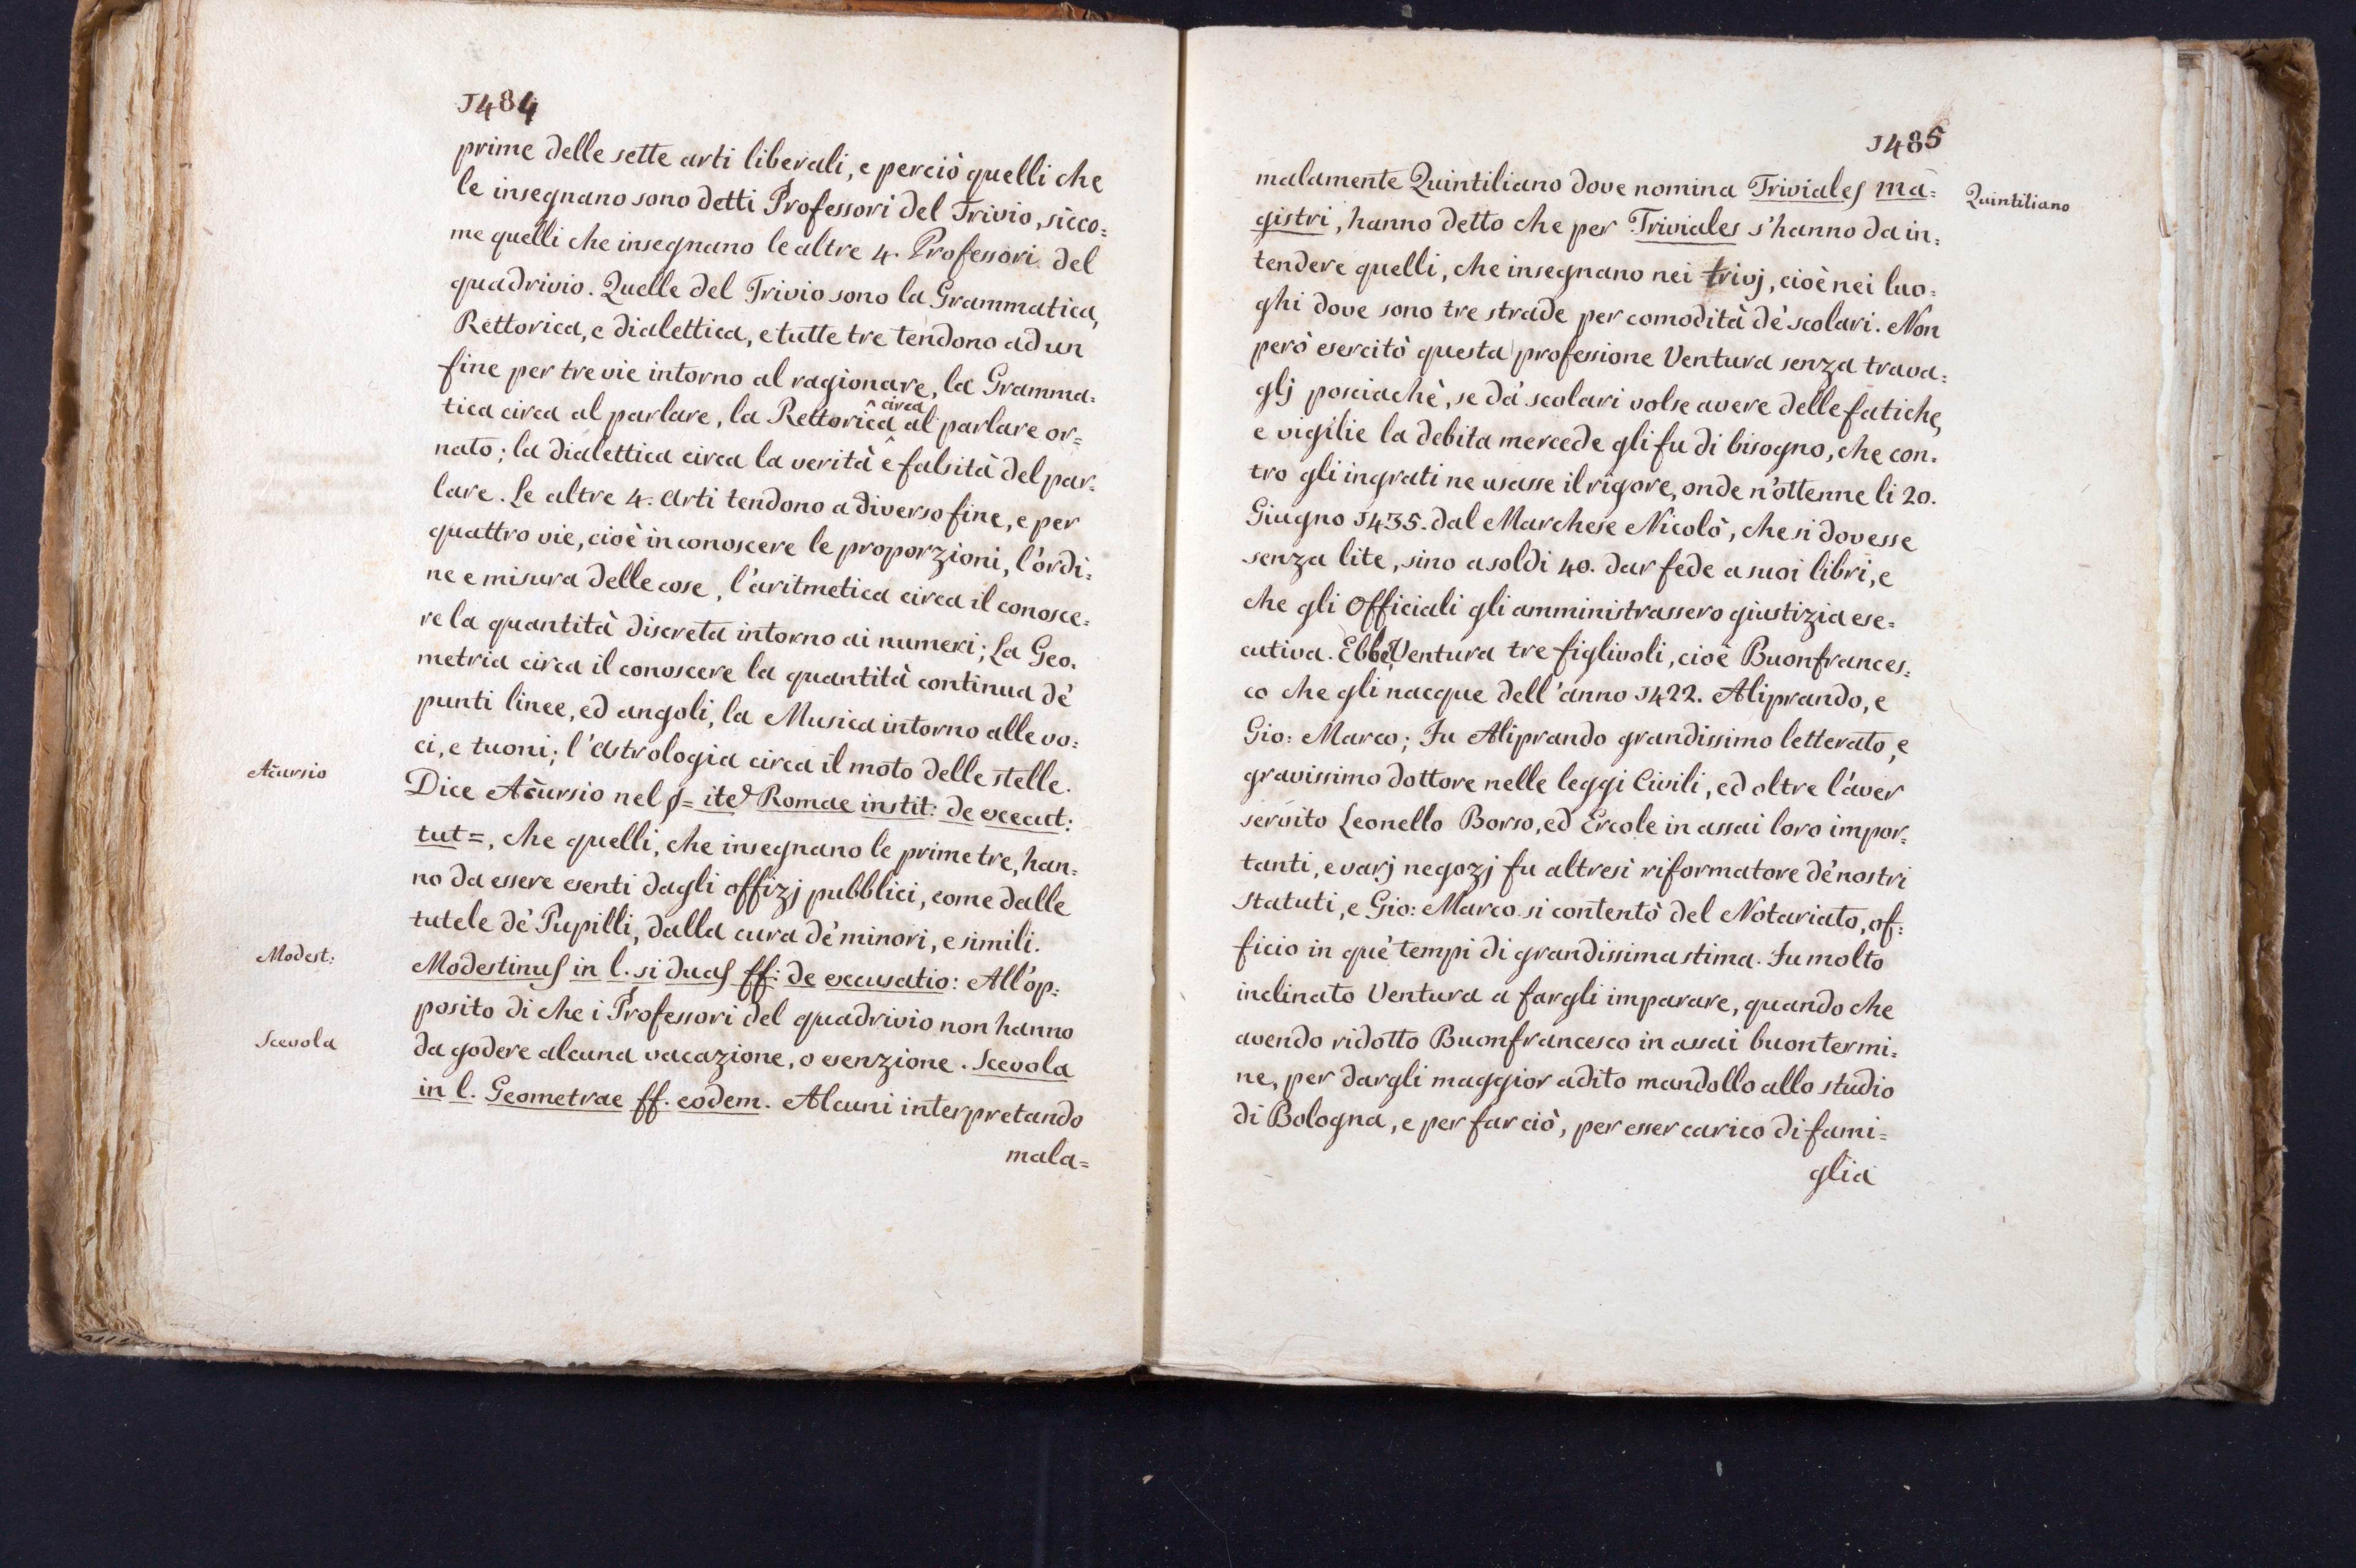 1484
prime delle sette arti liberali, e perciò quelli che
le insegnano sono detti Professori del Trivio, sicco=
me quelli che insegnano le altre 4. Professori del
quadrivio. Quelle del Trivio sono la Grammatica,
Rettorica, e dialettica, e tutte tre tendono ad un
fine per tre vie intorno al ragionare, la Gramma=
tica circa al parlare, la Rettorica ^circa al parlare or=
nato; la dialettica circa la verità e falsità del par=
lare. Le altre 4. Arti tendono a diverso fine, e per
quattro vie, cioè in conoscere le proporzioni, l'ordi=
ne e misura delle cose, l'aritmetica circa il conosce=
re la quantità discreta intorno ai numeri; La Geo=
metria circa il conoscere la quantità continua de'
punti linee, ed angoli, la Musica intorno alle vo=
ci, e tuoni; l'Astrologia circa il moto delle stelle.
Acursio
Dice Acursio nel §= ite Romae instit: de excecut:
tut=, che quelli, che insegnano le prime tre, han=
no da essere esenti dagli offizj pubblici, come dalle
tutele de' Pupilli, dalla cura de' minori, e simili.
Modest:
Modestinus in l. si duas ff: de excusatio: All'op=
posito di che i Professori del quadrivio non hanno
Scevola
da godere alcuna vacazione, o esenzione. Scevola
in l. Geometrae ff. eodem. Alcuni interpretando
mala=
1485
malamente Quintiliano dove nomina Triviales ma=
Quintiliano
gistri, hanno detto che per Triviales s'hanno da in=
tendere quelli, che insegnano nei trivj, cioè nei luo=
ghi dove sono tre strade per comodità de' scolari. Non
però esercitò questa professione Ventura senza trava=
glj posciachè, se da' scolari volse avere delle fatiche,
e vigilie la debita mercede gli fu di bisogno, che con=
tro gli ingrati ne usasse il rigore, onde n'ottenne li 20.
Giugno 1435. dal Marchese Nicolò, che si dovesse
senza lite, sino a soldi 40. dar fede a suoi libri, e
che gli Officiali gli amministrassero giustizia ese=
cutiva. Ebbe Ventura tre figlivoli, cioè Buonfrances=
co che gli nacque dell'anno 1422. Aliprando, e
Gio: Marco; Fu Aliprando grandissimo letterato, e
gravissimo dottore nelle leggi Civili, ed oltre l'aver
servito Leonello Borso, ed Ercole in assai loro impor=
tanti, e varj negozj fu altresì riformatore de' nostri
Statuti, e Gio: Marco si contentò del Notariato, of=
ficio in que' tempi di grandissima stima. Fu molto
inclinato Ventura a fargli imparare, quando che
avendo ridotto Buonfrancesco in assai buon termi=
ne, per dargli maggior adito mandollo allo studio
di Bologna, e per far ciò, per esser carico di fami=
glia